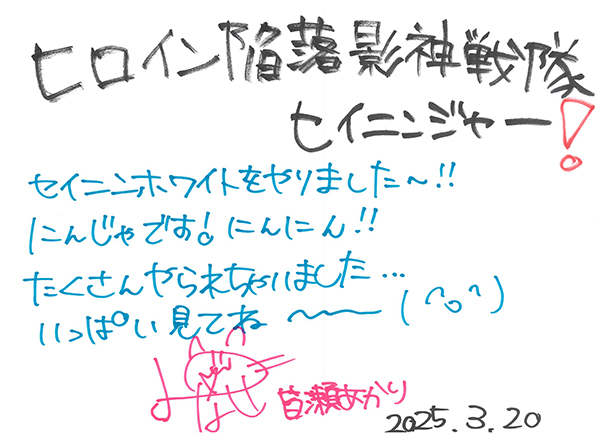 ヒロイン陥落影神戦隊
セイニンジャー!
セイニンホワイトをやりました〜!!
にんじゃです!にんにん!!
たくさんやられちゃいました...
いっぱい見てね 〜〜 (^o^)
皆瀬あかり
2025.3.20